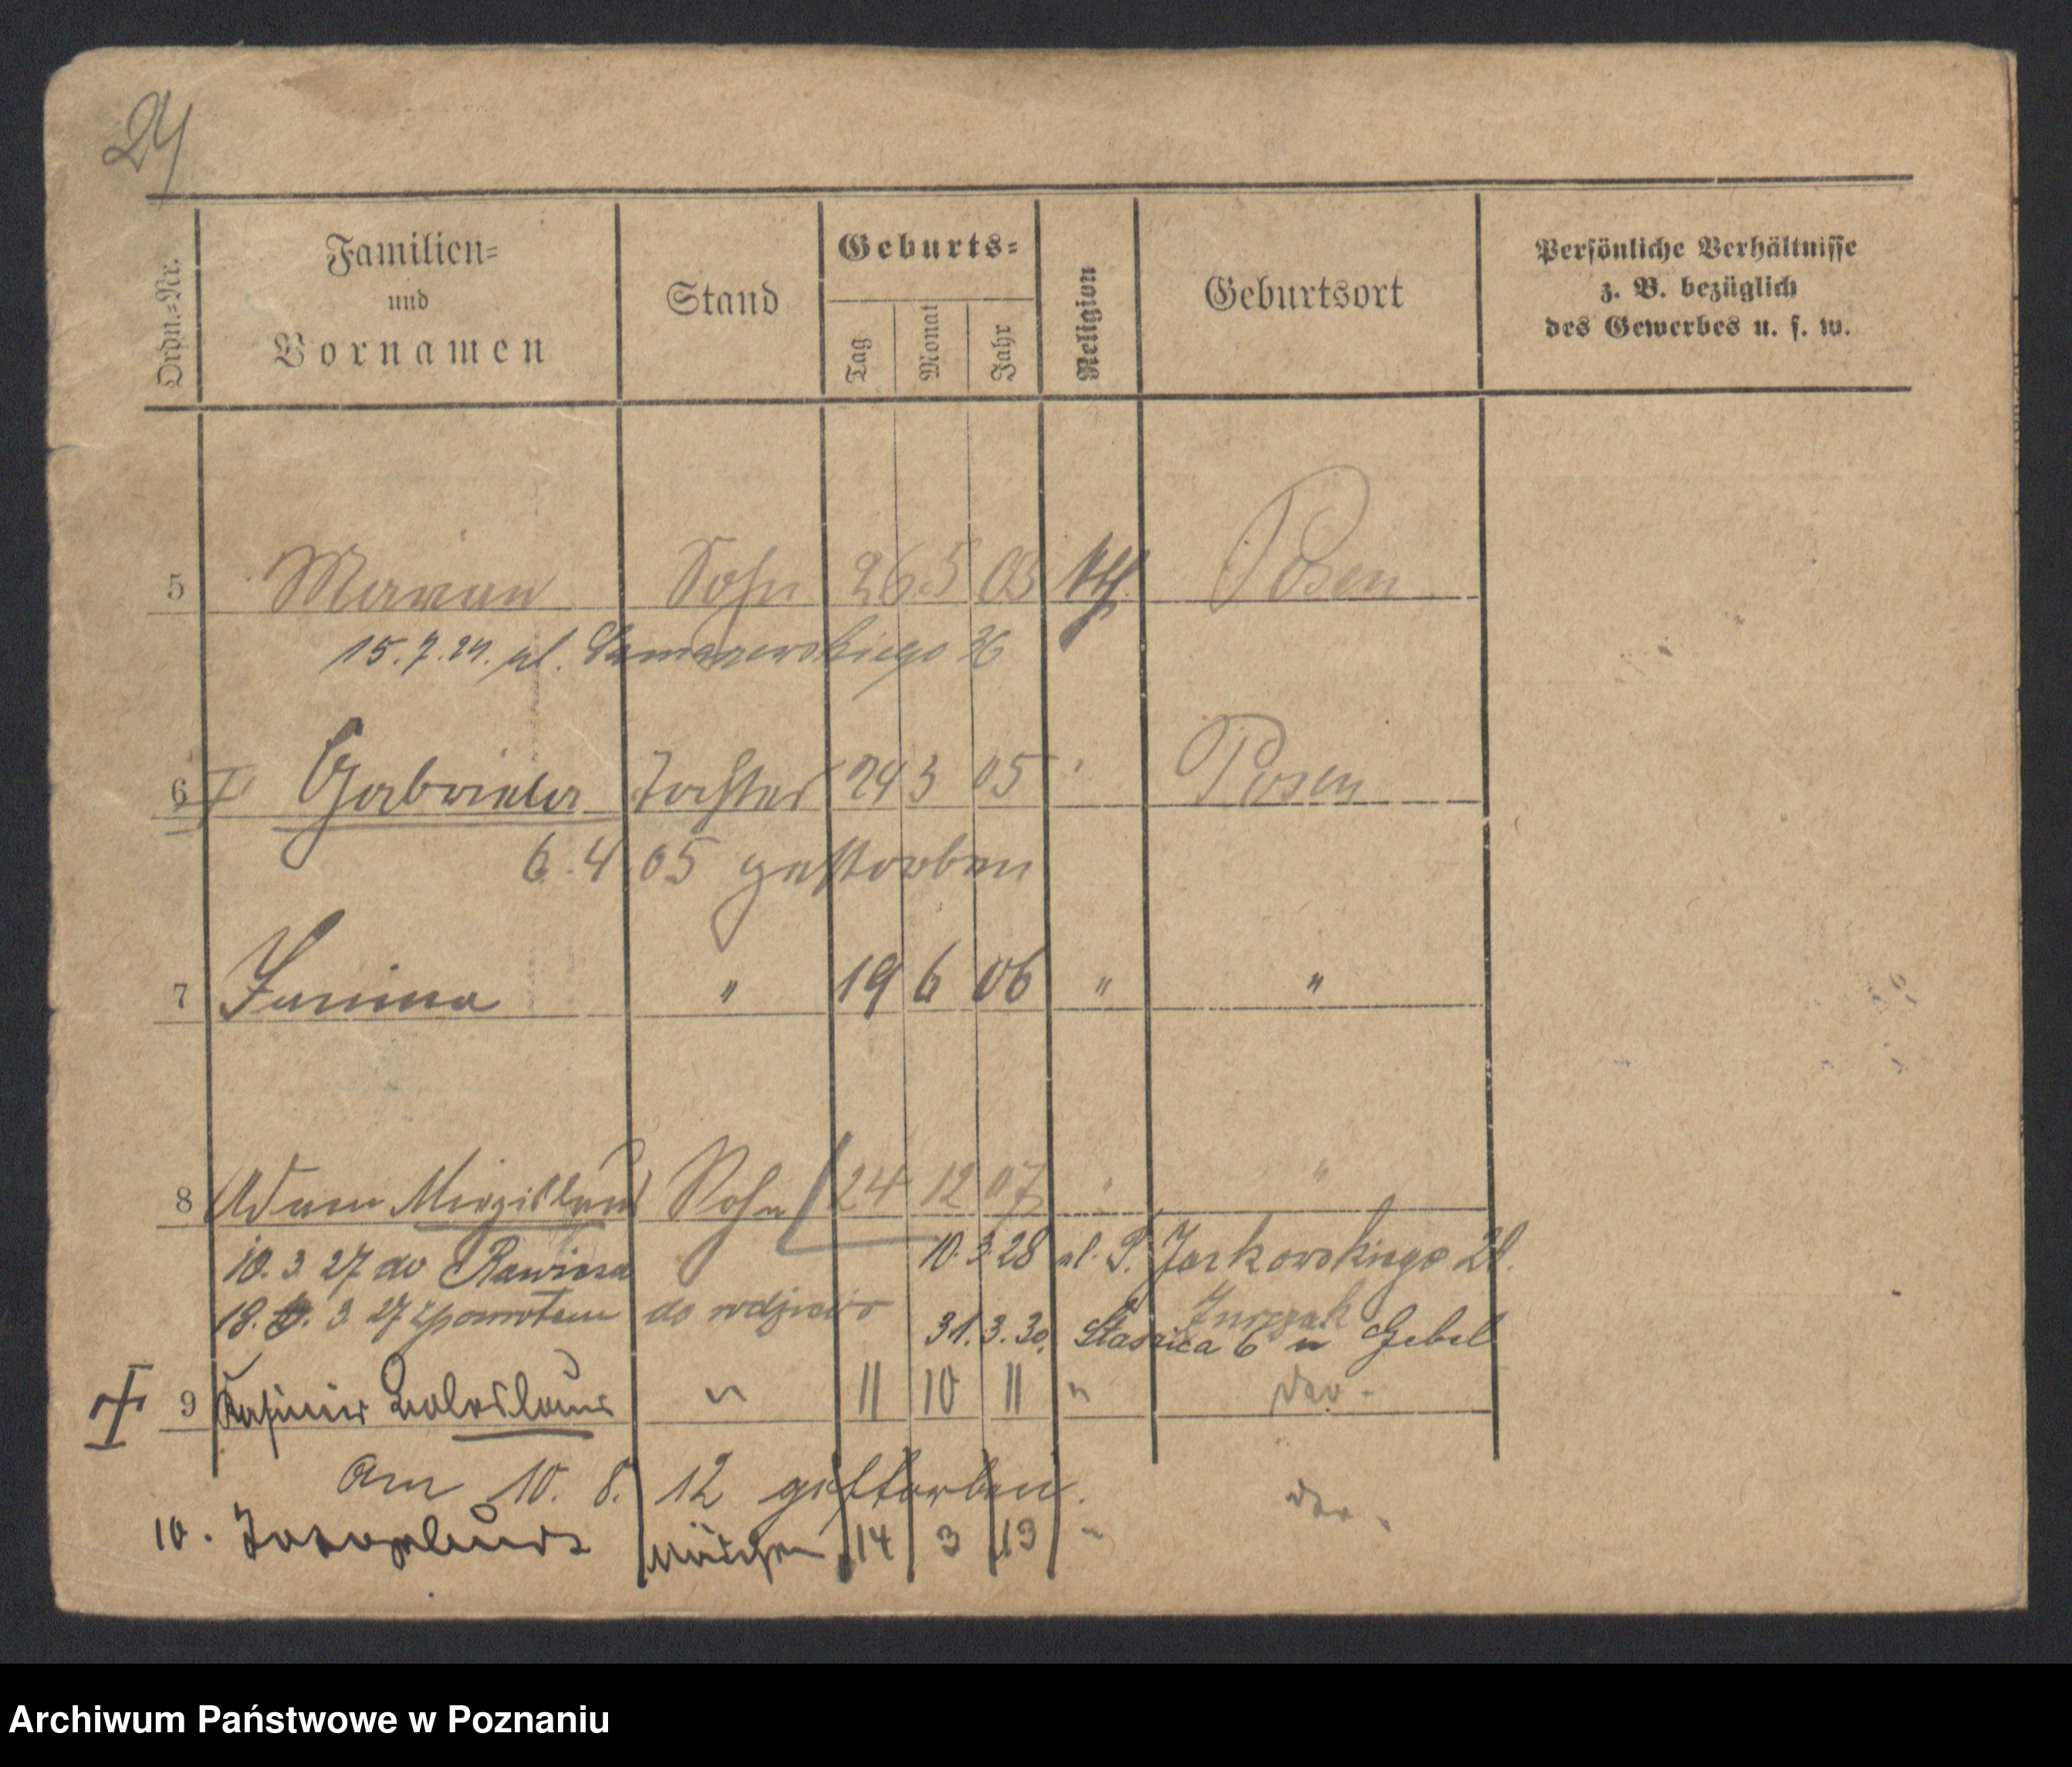 24
Ordn.-Nr.
Familien-
und
Vornamen
Stand
Geburts-
Tag
Monat
Jahr
Religion
Geburtsort
Persönliche Verhältnisse
z. B. bezüglich
des Gewerbes u. s. w.
5 Marian Sohn 26 5 03 kth. Posen
15.7.24. ul. 36
6 Gabriela Tochter 24 3 05 " Posen
6. 4 05 gestorben
7 Janina " 19 6 06 " "
8 Adam Sohn 24 12 07 " "
10. 3 27 do Rawicza
10. 3. 28 ul. P. Jackowskiego 21.
18. 3 27 z powrotem do rodziców
31. 3. 30. Staszica 6 u Gebel
9 Kasimir Boleslaus " 11 10 11 " das.
am 10. 8. 12 gestorben.
10. Mädchen 14 3 13 " das.
Archiwum Państwowe w Poznaniu